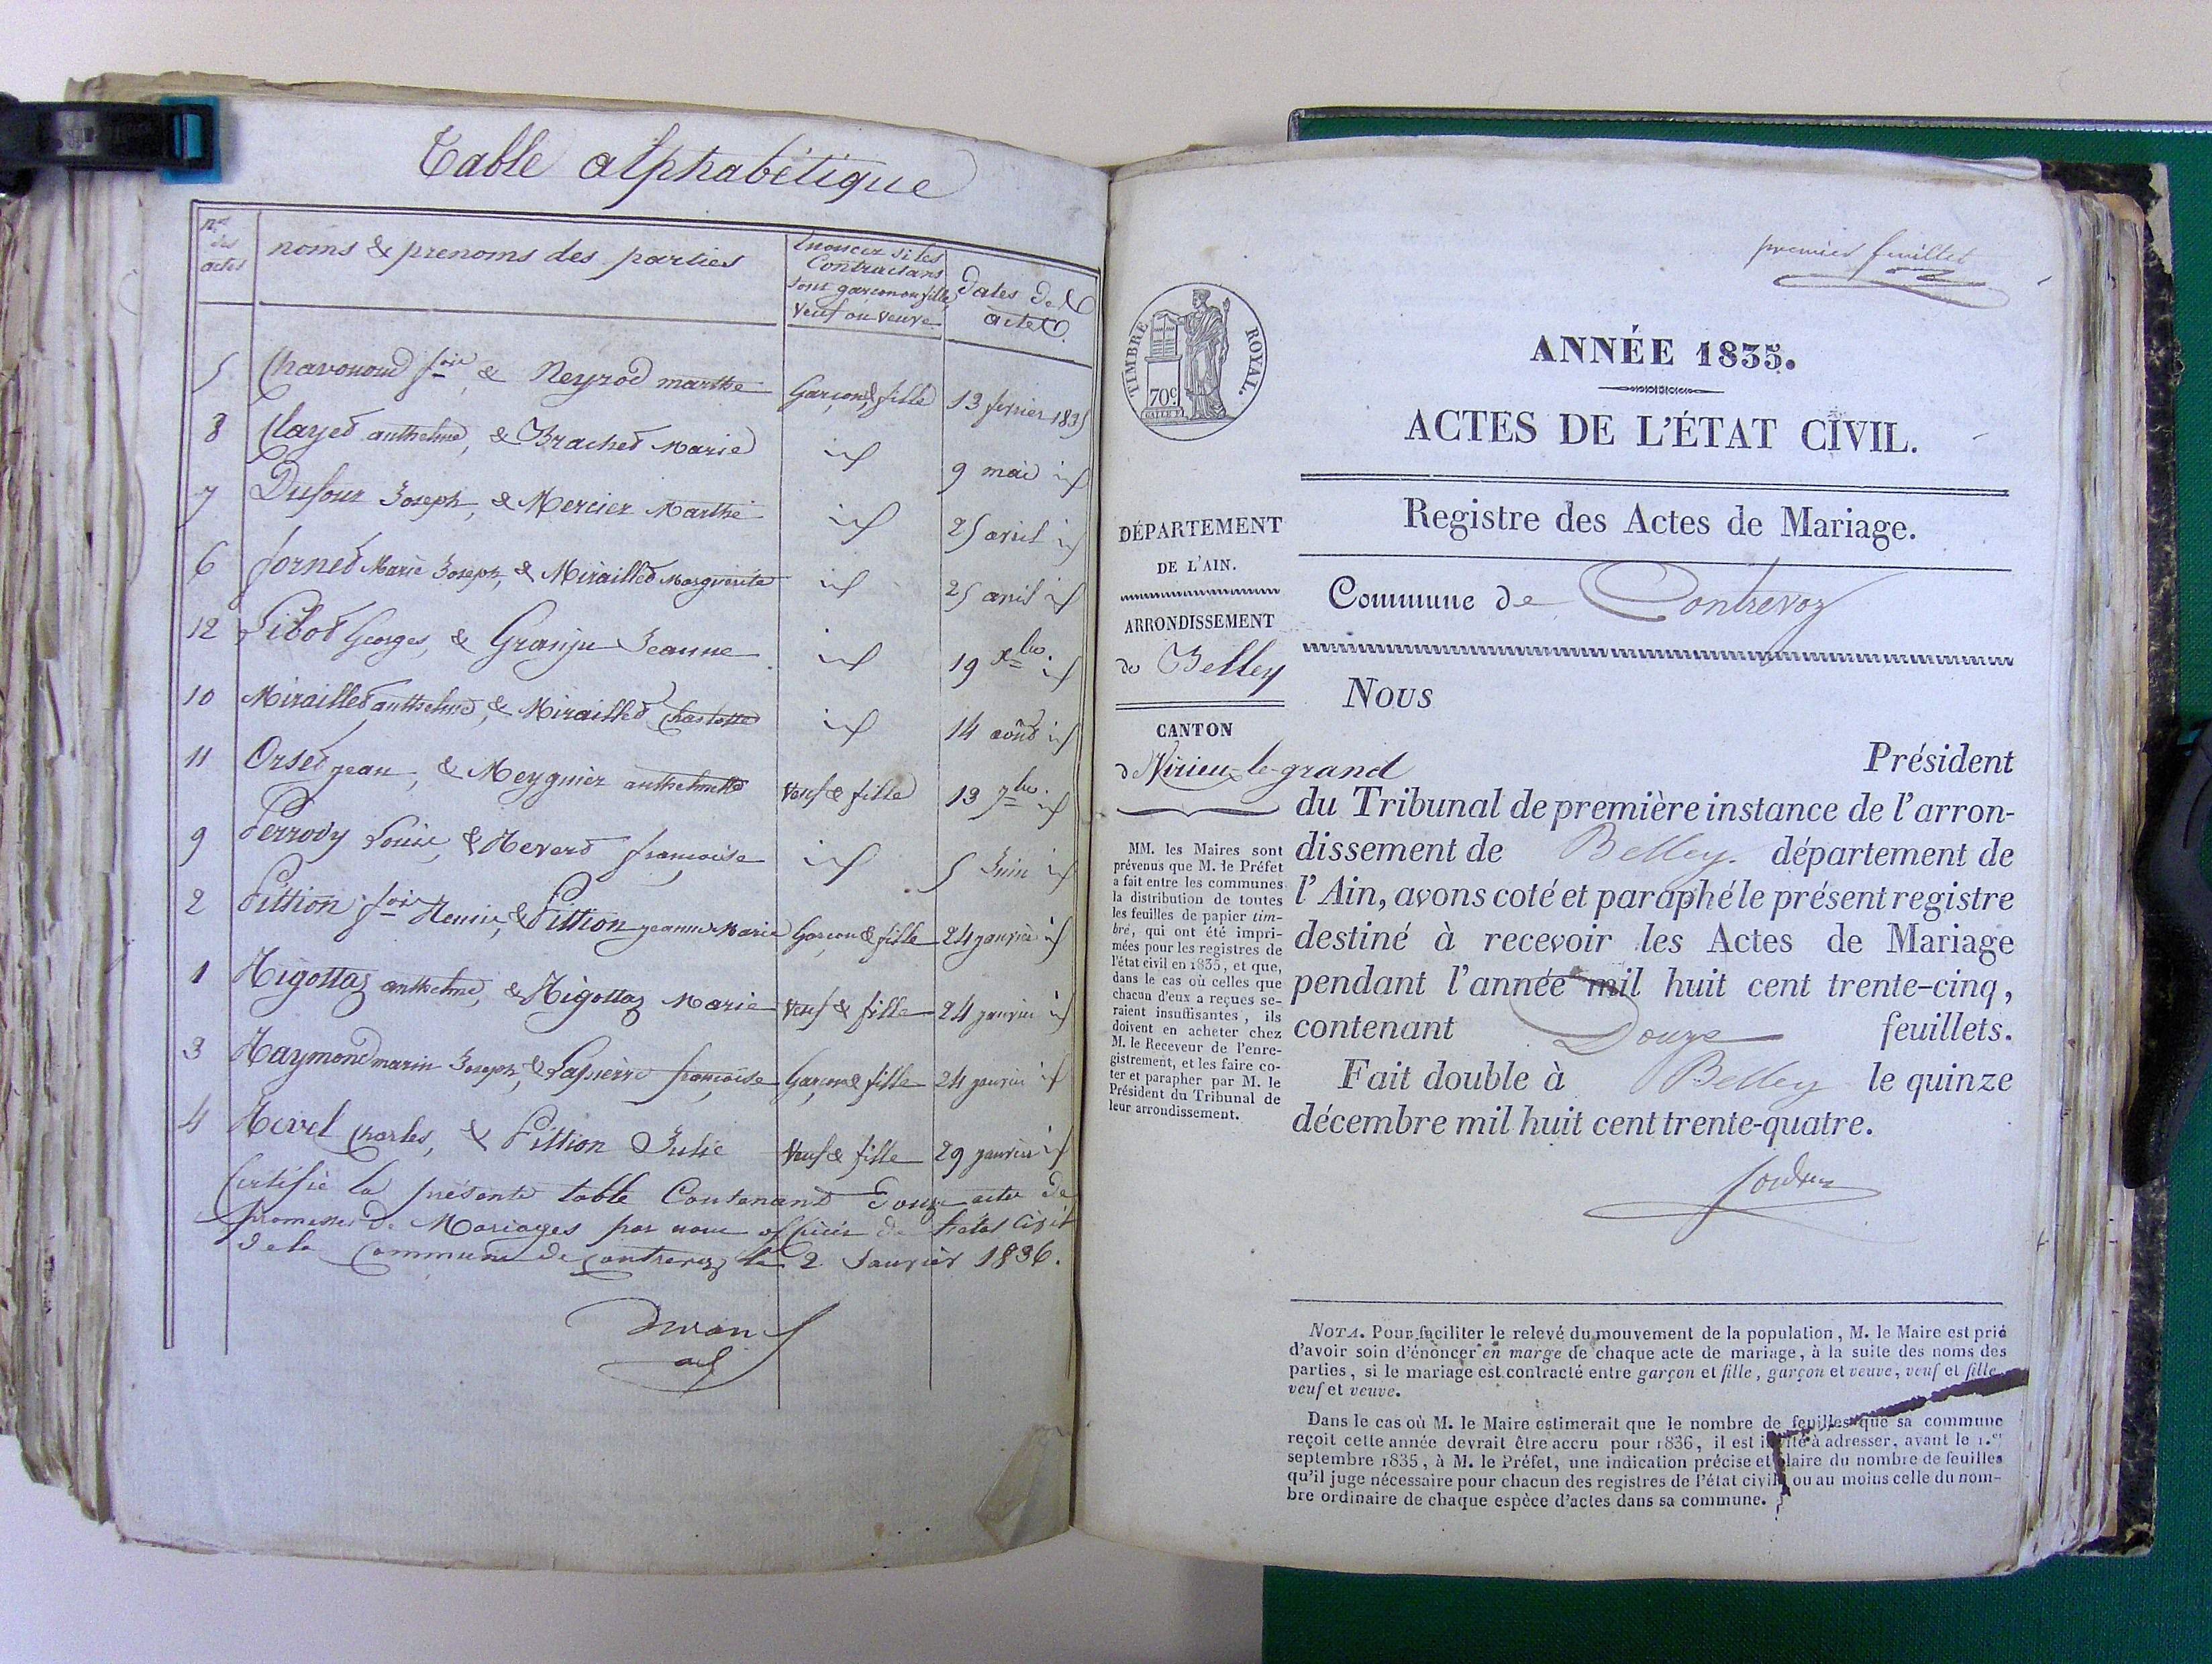 Table alphabétique
nos des actes
noms & prenoms des parties
Enoncer si les Contractans sont garçon ou fille, Veuf ou Veuve
dates des actes
5 Chavonond fois & Neyrod marthe Garçon & fille 13 fevrier 1835
8 Clayet anthelme, & Brachet Marie id 9 mai id
7 Dufour Joseph, & Mercier Marthe id 25 avril id
6 fornet Marie Joseph, & Miraillet Marguerite id 25 avril id
12 Georges, & Granju Jeanne id 19 xbre id
10 Miraillet anthelme, & Miraillet Charlotte id 14 août id
11 Orset jean, & Meygnier anthelmette Veuf & fille 13 7bre id
9 Perrody Louis, & Revero françoise id 5 Juin id
2 Pittion fois & Pittion jeanne Marie Garçon & fille 24 janvier id
1 Rigottaz anthelme, & Rigottaz Marie Veuf & fille 24 janvier id
3 Raymond marin Joseph, & Lapierre françoise Garçon & fille 24 janvier id
4 Revel Charles, & Pittion Julie Veuf & fille 29 janvier id
Certifié la présente table Contenant Douze actes de
promesses de Mariages par nous officier de l'état Civil
de la Commune de Contrevoz le 2 Janvier 1836.
premier feuillet
TIMBRE ROYAL.
70c
ANNÉE 1835.
ACTES DE L'ÉTAT CIVIL.
Registre des Actes de Mariage.
DÉPARTEMENT
DE L'AIN.
ARRONDISSEMENT
de Belley
CANTON
de Virieu-le-grand
MM. les Maires sont
prévenus que M. le Préfet
a fait entre les communes
la distribution de toutes
les feuilles de papier tim-
bré, qui ont été impri-
mées pour les registres de
l'état civil en 1835, et que,
dans le cas où celles que
chacun d'eux a reçues se-
raient insuffisantes, ils
doivent en acheter chez
M. le Receveur de l'enre-
gistrement, et les faire co-
ter et parapher par M. le
Président du Tribunal de
leur arrondissement.
Commune de Contrevoz
Nous
Président
du Tribunal de première instance de l'arron-
dissement de Belley. département de
l'Ain, avons coté et paraphé le présent registre
destiné à recevoir les Actes de Mariage
pendant l'année mil huit cent trente-cinq,
contenant Douze feuillets.
Fait double à Belley le quinze
décembre mil huit cent trente-quatre.
NOTA. Pour faciliter le relevé du mouvement de la population, M. le Maire est prié
d'avoir soin d'énoncer en marge de chaque acte de mariage, à la suite des noms des
parties, si le mariage est contracté entre garçon et fille, garçon et veuve, veuf et fille,
veuf et veuve.
Dans le cas où M. le Maire estimerait que le nombre de feuilles que sa commune
reçoit cette année devrait être accru pour 1836, il est invité à adresser, avant le 1.er
septembre 1835, à M. le Préfet, une indication précise et claire du nombre de feuilles
qu'il juge nécessaire pour chacun des registres de l'état civil, ou au moins celle du nom-
bre ordinaire de chaque espèce d'actes dans sa commune.